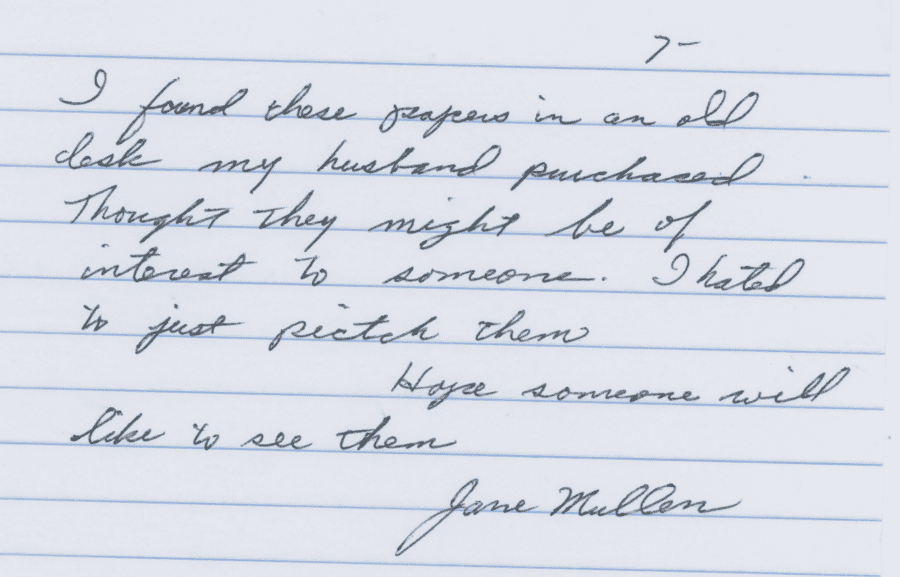 7-
I found these papers in an old
desk my husband purchased.
Thought they might be of
interest to someone. I hated
to just pictch them
Hope someone will
like to see them
Jane Mullen